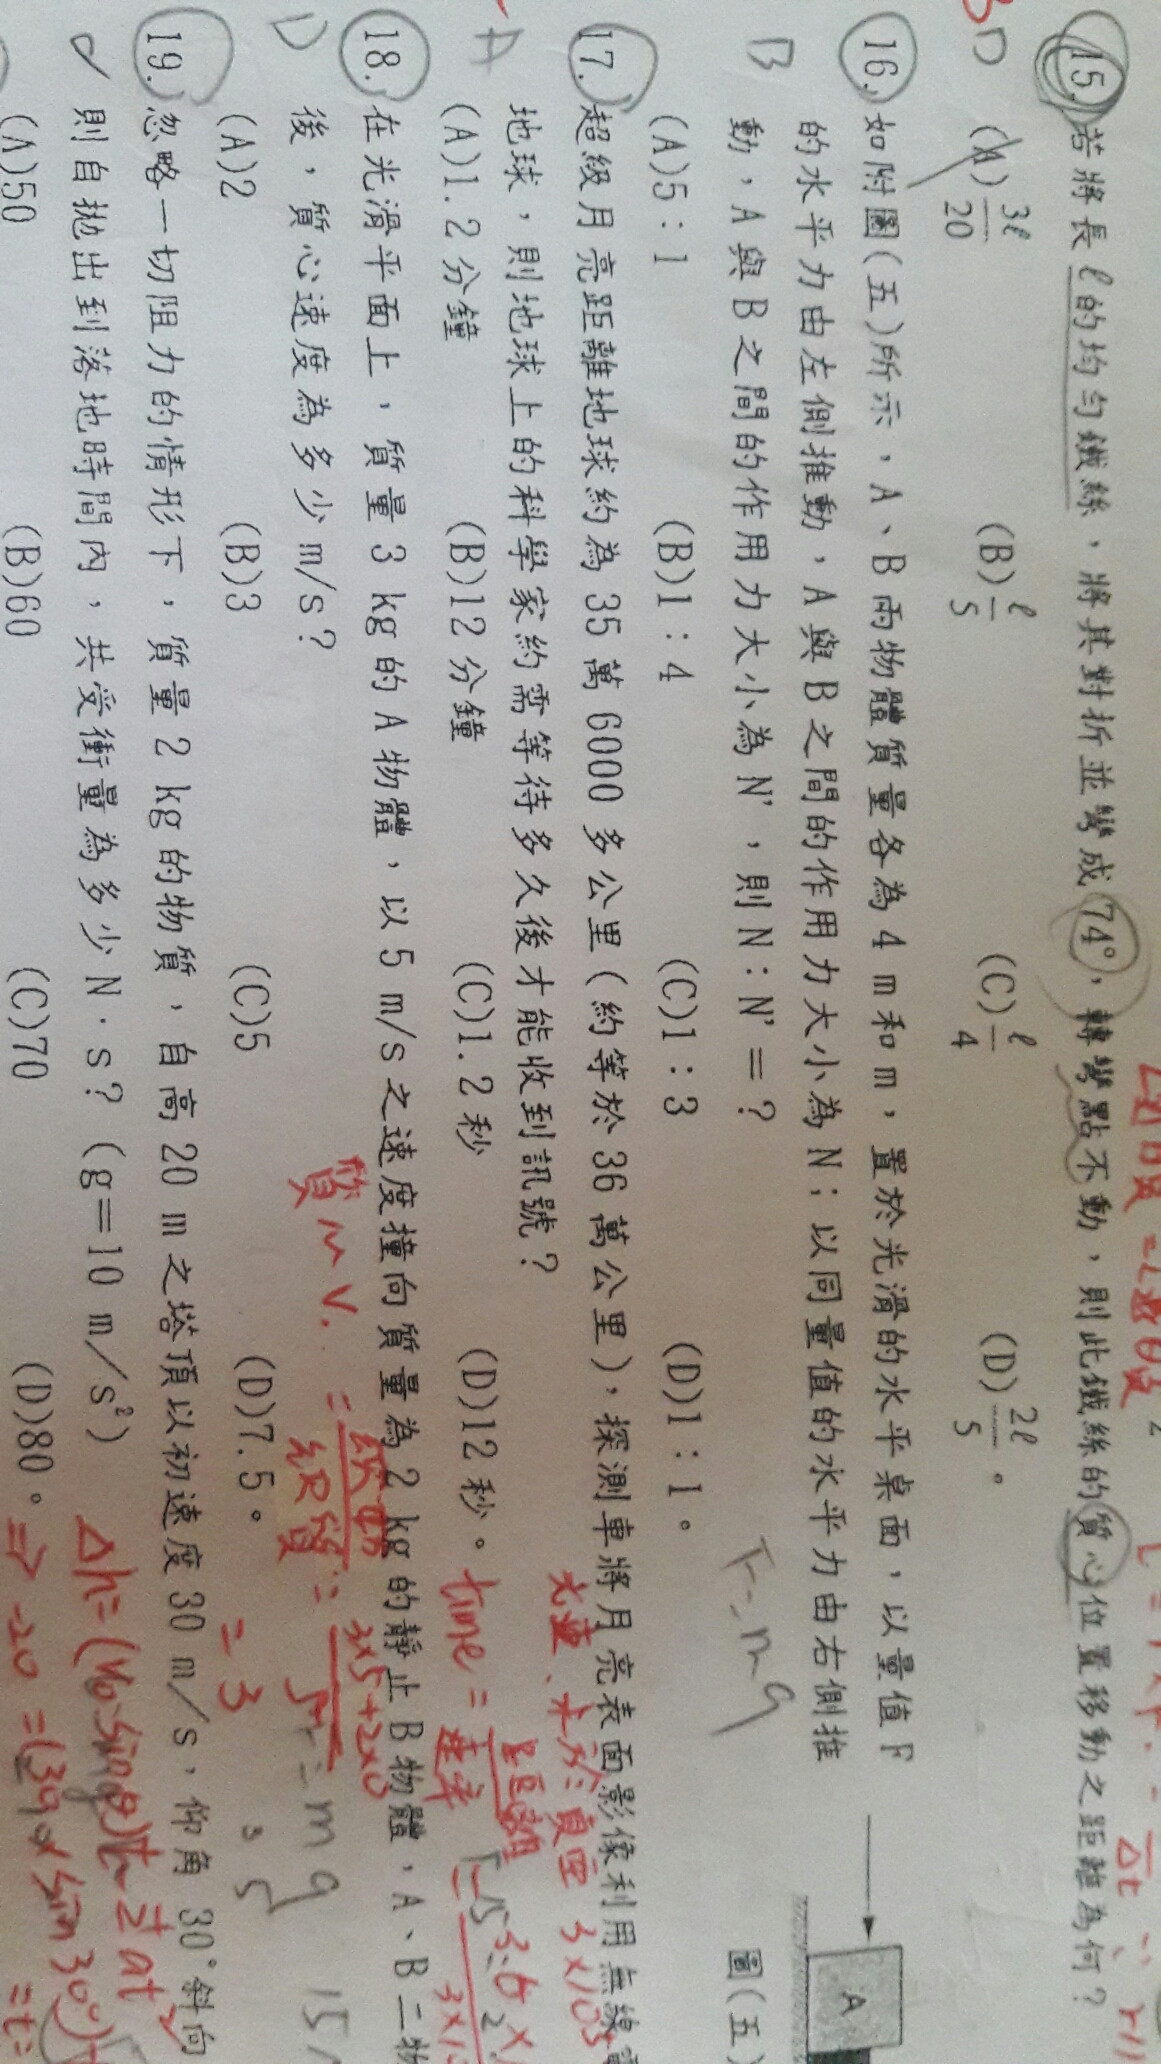 15.若將長ℓ的均勻鐵絲，將其對折並彎成74°，轉彎點不動，則此鐵絲的質心位置移動之距離為何？
(A)3ℓ/20 (B)ℓ/5 (C)ℓ/4 (D)2ℓ/5。
16.如附圖(五)所示，A、B兩物體質量各為4 m和m，置於光滑的水平桌面，以量值F
的水平力由左側推動，A與B之間的作用力大小為N；以同量值的水平力由右側推
動，A與B之間的作用力大小為N'，則N：N'＝？
(A)5：1 (B)1：4 (C)1：3 (D)1：1。
A
圖(五)
17.超級月亮距離地球約為35萬6000多公里(約等於36萬公里)，探測車將月亮表面影像利用無線電
地球，則地球上的科學家約需等待多久後才能收到訊號？
(A)1.2分鐘 (B)12分鐘 (C)1.2秒 (D)12秒。
18.在光滑平面上，質量3 kg的A物體，以5 m/s之速度撞向質量為2 kg的靜止B物體，A、B二物
後，質心速度為多少m/s？
(A)2 (B)3 (C)5 (D)7.5。
19.忽略一切阻力的情形下，質量2 kg的物質，自高20 m之塔頂以初速度30 m/s、仰角30°斜向
則自拋出到落地時間內，共受衝量為多少N．s？(g＝10 m/s²)
(A)50 (B)60 (C)70 (D)80。
D
B
A
D
F=ma
光速、
真空
time = 距離/速率
質心V. = 總動/總質 = 3×5+2×0
= 3